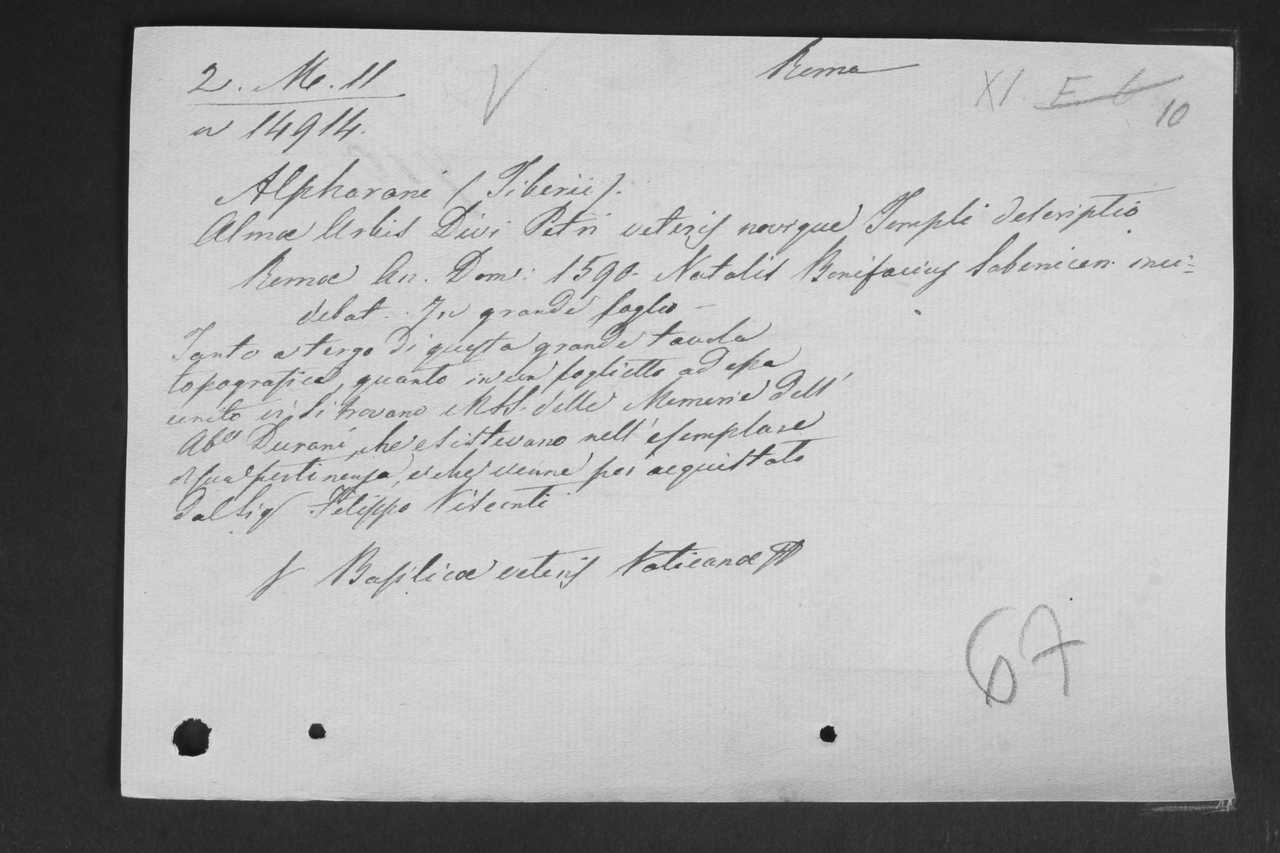 2. M. 11
Roma
XI. E. 6
10
n 14914.
Alpharani (Tiberii).
Almæ Urbis Divi Petri veteris novique Templi descriptio
Romæ An. Dom: 1590. Natalis Bonifacius Sebenicen. inci=
debat. In grande foglio -
Tanto a tergo di questa grande tavola
topografica, quanto in un foglietto ad essa
unito vi si trovano MSS. delle Memorie dell'
Abe Durani, che esistevano nell' esemplare
di sua pertinenza, e che venne poi acquistato
dal Sig Filippo Visconti
Basilicæ veteris Vaticanæ
67